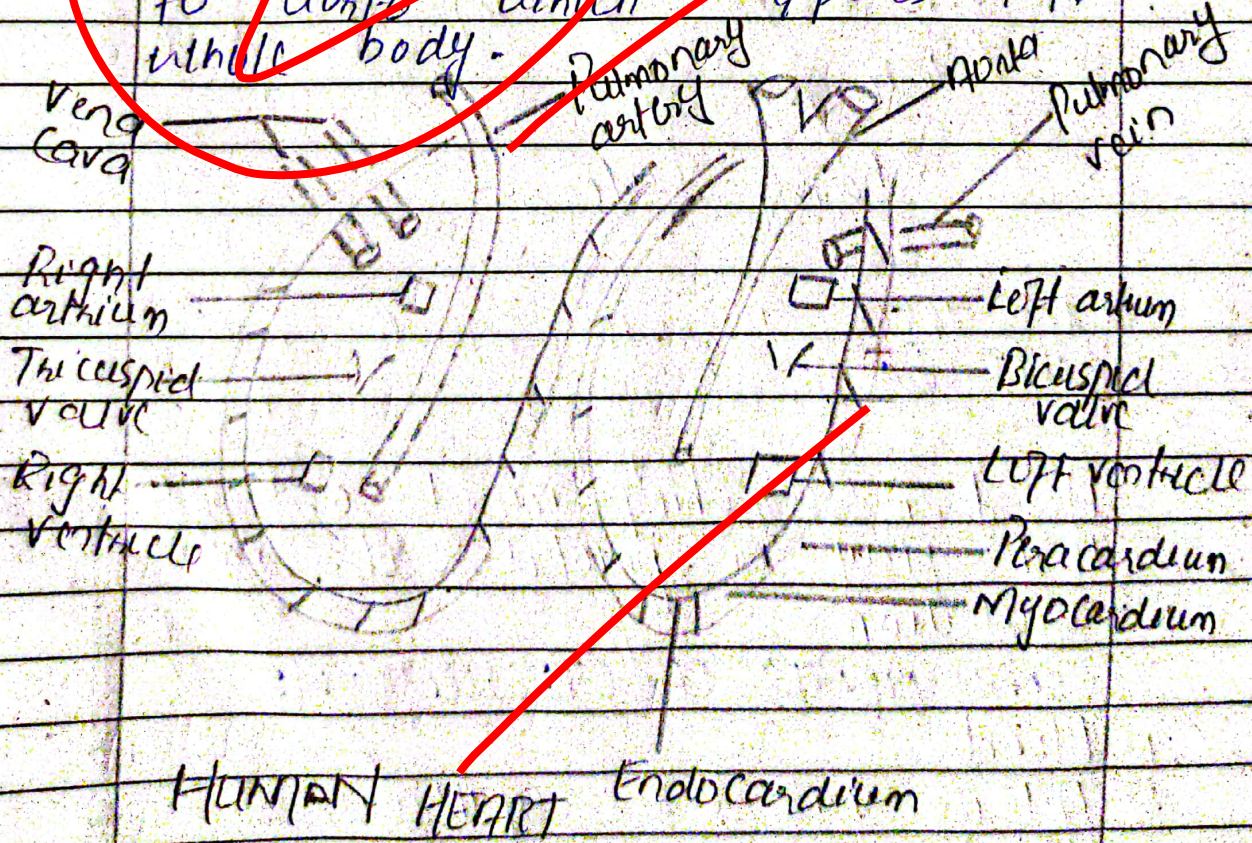 to
whole body.
Vena
Cava
Pulmonary
artery
Aorta
Pulmonary
vein
Right
arthium
Left artium
Tricuspid
valve
Bicuspid
valve
Right
ventricle
Left ventricle
Peracardium
Myocardium
Endocardium
HUMAN HEART